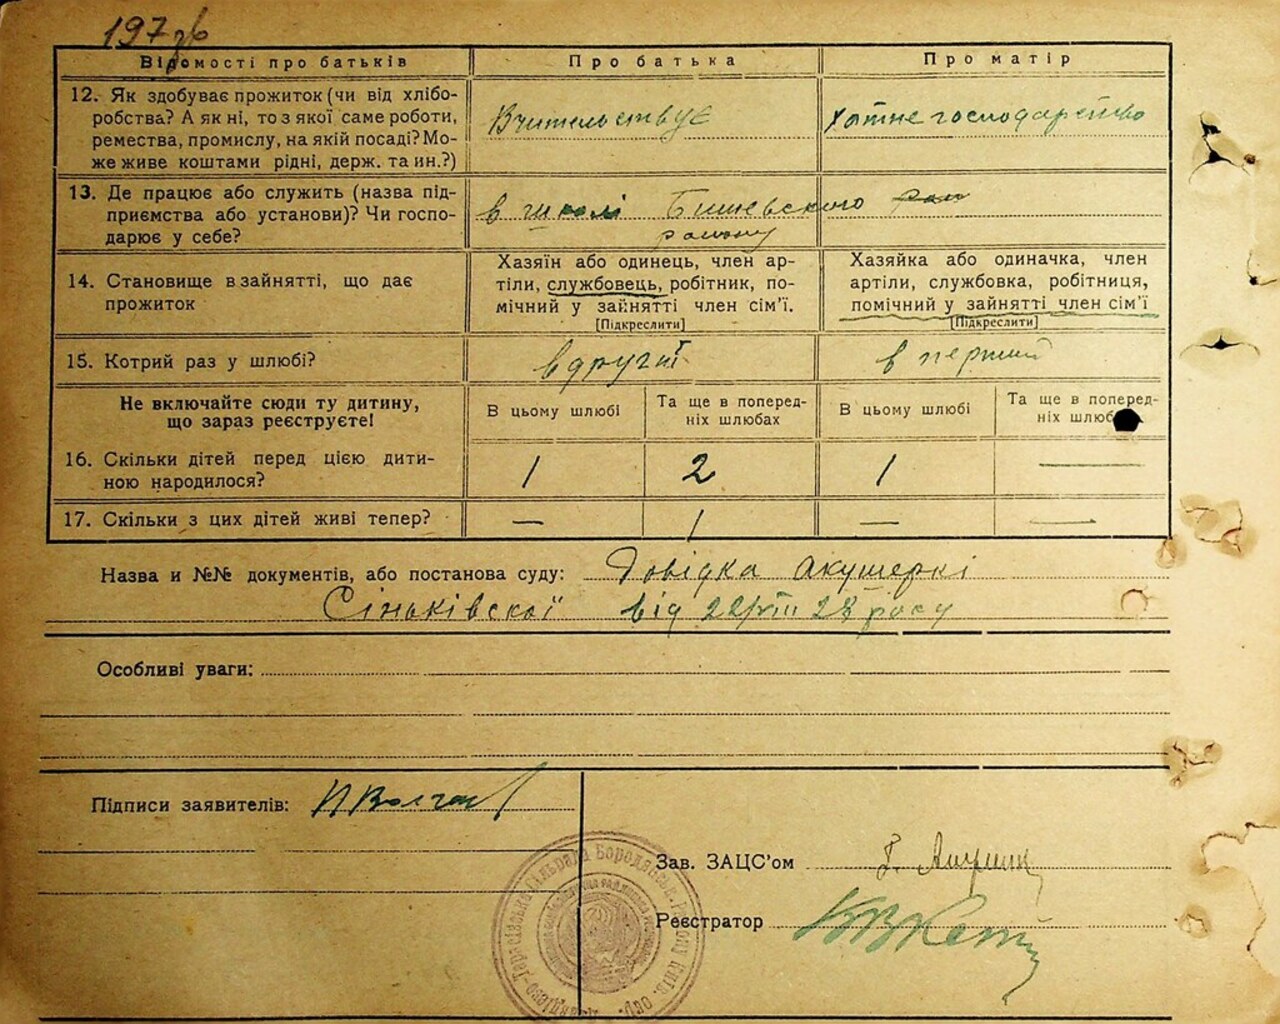 197 зв
Відомості про батьків
Про батька
Про матір
12. Як здобуває прожиток (чи від хлібо-
робства? А як ні, то з якої саме роботи,
ремества, промислу, на якій посаді? Мо-
же живе коштами рідні, держ. та ин.?)
Вчительствує
Хатне господарство
13. Де працює або служить (назва під-
приємства або установи)? Чи госпо-
дарює у себе?
в школі Бишевського рай
району
14. Становище в занятті, що дає
прожиток
Хазяїн або одинець, член ар-
тіли, службовець, робітник, по-
мічний у занятті член сім'ї.
[Підкреслити]
Хазяйка або одиначка, член
артіли, службовка, робітниця,
помічний у занятті член сім'ї
[Підкреслити]
15. Котрий раз у шлюбі?
вдругий
в перший
Не включайте сюди ту дитину,
що зараз реєструєте!
В цьому шлюбі
Та ще в поперед-
ніх шлюбах
В цьому шлюбі
Та ще в поперед-
ніх шлюбах
16. Скільки дітей перед цією дити-
ною народилося?
1
2
1
—
17. Скільки з цих дітей живі тепер?
—
1
—
—
Назва и №№ документів, або постанова суду: Довідка акушеркі
Сіньківскої від 22/VIII 28 року
Особливі уваги:
Підписи заявителів:
Зав. ЗАЦС'ом
Реєстратор
Сільрада Бородянськ. Району Київ. окр.